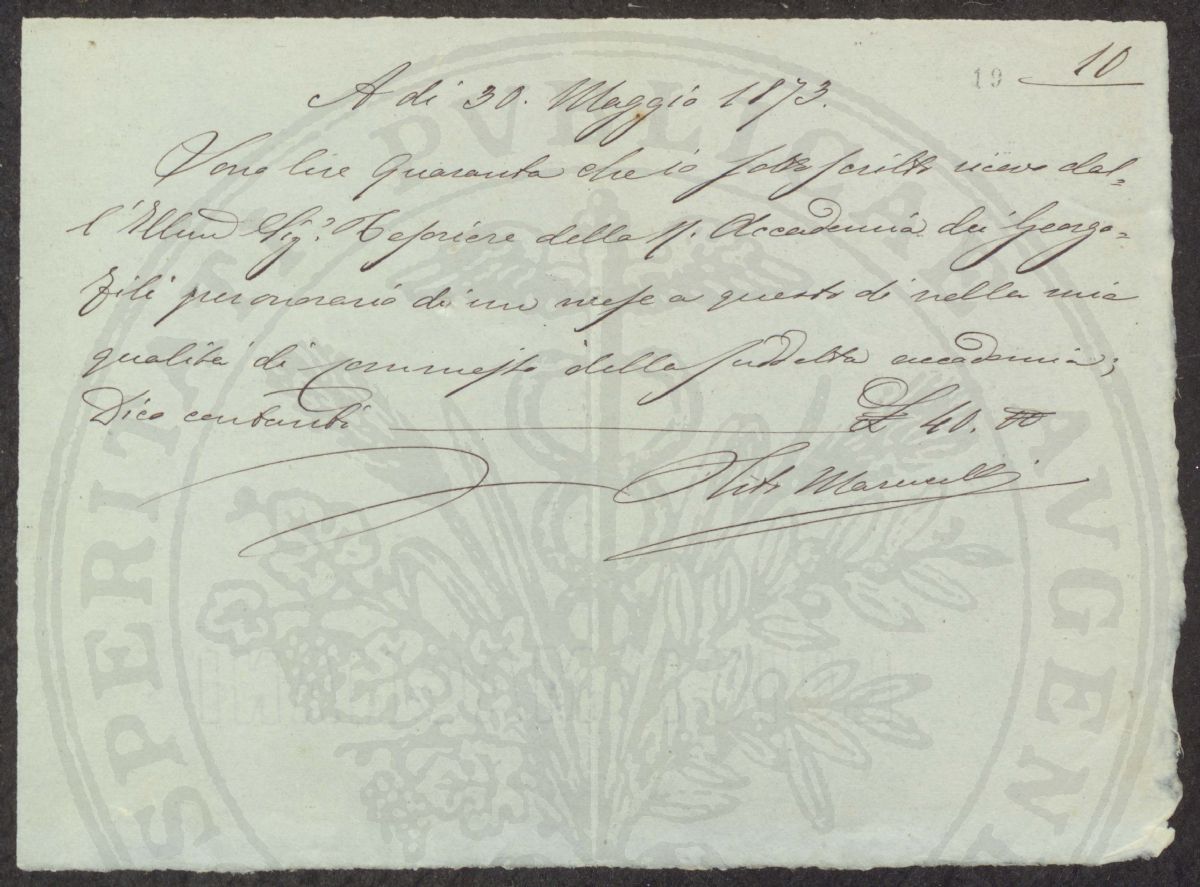 19 10
A di 30. Maggio 1873.
Sono lire Quaranta che io sottoscritto ricevo dal=
l'Illmo Sigr. Tesoriere della R. Accademia dei Georgo=
fili per onorario di un mese a questo dì nella mia
qualità di commesso della suddetta accademia;
Dico contanti £ 40. 00
Marucelli
SPERITATI PVBLICAE AVGEN